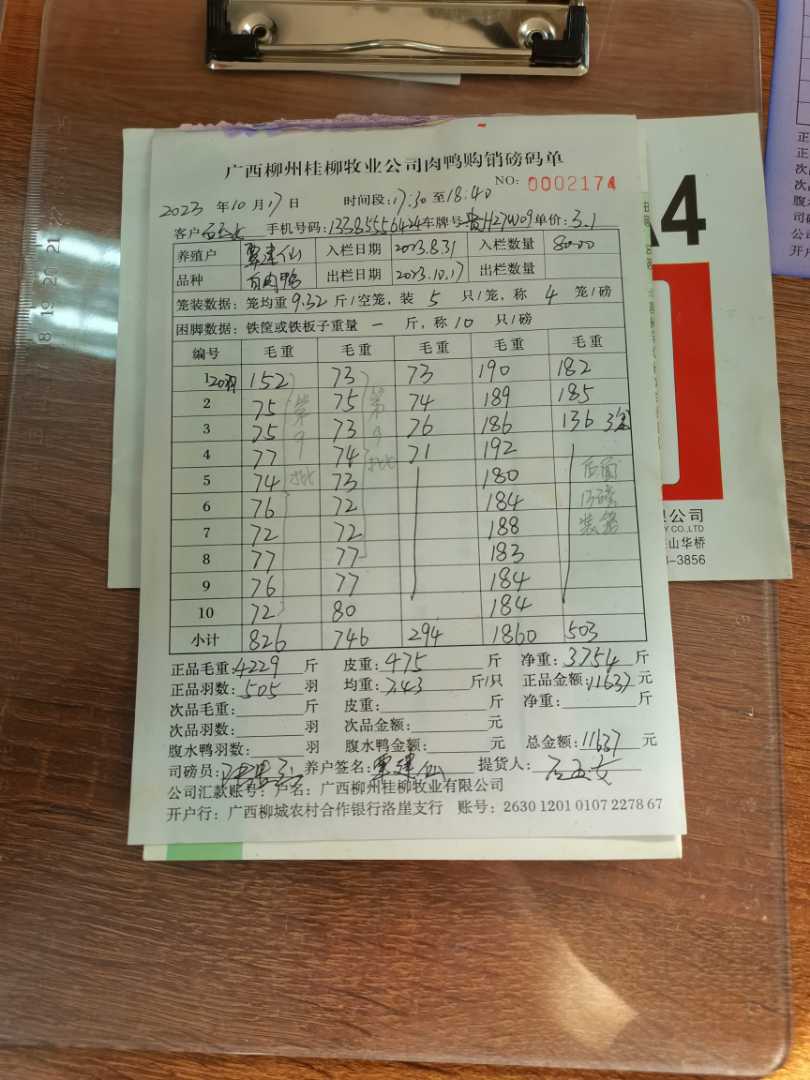 广西柳州桂柳牧业公司肉鸭购销磅码单
NO: 0002174
2023 年 10 月 17 日 时间段: 17:30 至 18:40
客户 手机号码: 13385556424 车牌号 贵H27W09 单价: 3.1
养殖户 覃建仙 入栏日期 2023.8.31 入栏数量 8000
品种 白肉鸭 出栏日期 2023.10.17 出栏数量
笼装数据: 笼均重 9.32 斤/空笼, 装 5 只/笼, 称 4 笼/磅
困脚数据: 铁筐或铁板子重量 一 斤, 称 10 只/磅
编号 毛重 毛重 毛重 毛重 毛重
1 20羽 152 73 73 190 182
2 75 75 74 189 185
3 75 73 76 186 136 3笼
4 77 74 71 192
5 74 73 180
6 76 72 184
7 72 72 188
8 77 77 183
9 76 77 184
10 72 80 184
第9批
第9批
后面13磅装笼
小计 826 746 294 1860 503
正品毛重: 4229 斤 皮重: 475 斤 净重: 3754 斤
正品羽数: 505 羽 均重: 7.43 斤/只 正品金额: 11637 元
次品毛重: 斤 皮重: 斤 净重: 斤
次品羽数: 羽 次品金额: 元
腹水鸭羽数: 羽 腹水鸭金额: 元 总金额: 11637 元
司磅员: 养户签名: 覃建仙 提货人:
公司汇款账号: 户名: 广西柳州桂柳牧业有限公司
开户行: 广西柳城农村合作银行洛崖支行 账号: 2630 1201 0107 2278 67
A4
公司
Y CO.,LTD
山华桥
3-3856